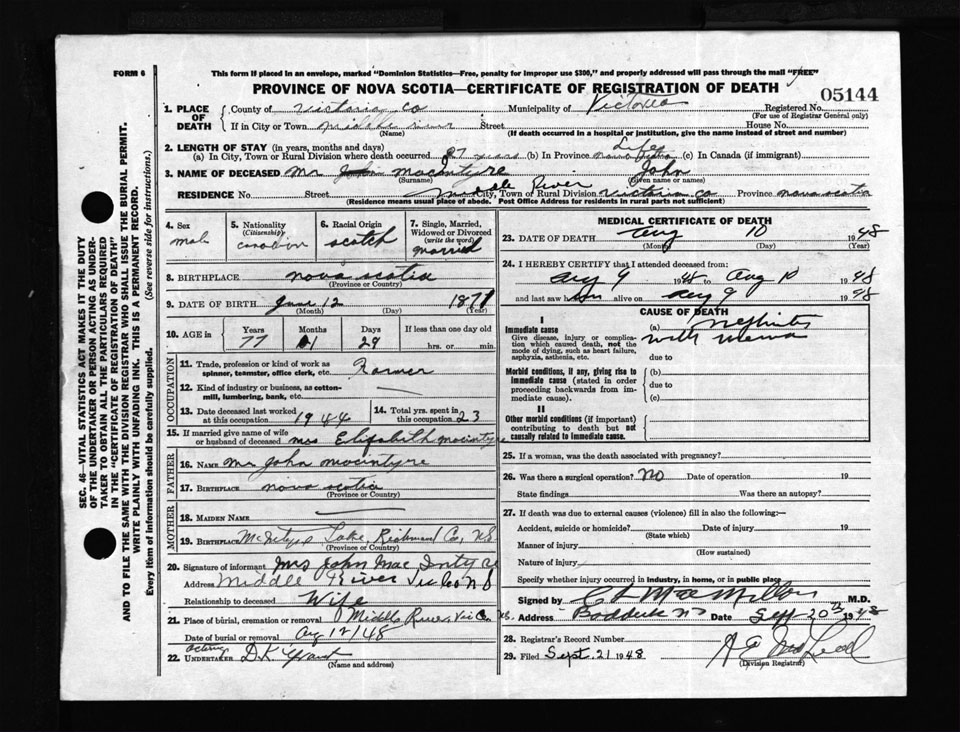 FORM 6
This form if placed in an envelope, marked "Dominion Statistics—Free, penalty for improper use $300," and properly addressed will pass through the mail "FREE"
PROVINCE OF NOVA SCOTIA—CERTIFICATE OF REGISTRATION OF DEATH
05144
1. PLACE OF DEATH
County of Victoria Co Municipality of Victoria Registered No.
(For use of Registrar General only)
If in City or Town Middle River Street House No.
(Name) (If death occurred in a hospital or institution, give the name instead of street and number)
2. LENGTH OF STAY (in years, months and days) Life
(a) In City, Town or Rural Division where death occurred 27 years (b) In Province Nova Scotia (c) In Canada (if immigrant)
3. NAME OF DECEASED Mr John MacIntyre John
(Surname) (Given name or names)
RESIDENCE No. Street Middle River City, Town or Rural Division Victoria Co Province Nova Scotia
(Residence means usual place of abode. Post Office Address for residents in rural parts not sufficient)
4. Sex
male
5. Nationality (Citizenship)
Canadian
6. Racial Origin
Scotch
7. Single, Married, Widowed or Divorced (write the word)
Married
8. BIRTHPLACE Nova Scotia
(Province or Country)
9. DATE OF BIRTH June 12 1871
(Month) (Day) (Year)
10. AGE in Years Months Days If less than one day
77 1 29 hrs. or min.
OCCUPATION
11. Trade, profession or kind of work as spinner, teamster, office clerk, etc. Farmer
12. Kind of industry or business, as cotton-mill, lumbering, bank, etc.
13. Date deceased last worked at this occupation 1944
14. Total yrs. spent in this occupation 23
15. If married give name of wife or husband of deceased Mrs Elizabeth MacIntyre
FATHER
16. NAME Mr John MacIntyre
17. BIRTHPLACE Nova Scotia
(Province or Country)
MOTHER
18. MAIDEN NAME
19. BIRTHPLACE McIntyre Lake, Richmond Co, N.S.
(Province or Country)
20. Signature of informant Mrs John MacIntyre
Address Middle River Vic Co N S
Relationship to deceased Wife
21. Place of burial, cremation or removal Middle River, Vic Co. N.S.
Date of burial or removal Aug 12/48
22. Acting UNDERTAKER D.K. Grant
(Name and address)
MEDICAL CERTIFICATE OF DEATH
23. DATE OF DEATH Aug 10 1948
(Month) (Day) (Year)
24. I HEREBY CERTIFY that I attended deceased from:
Aug 9 1948 to Aug 10 1948
and last saw him alive on Aug 9 1948
CAUSE OF DEATH
I
Immediate cause
Give disease, injury or complication which caused death, not the mode of dying, such as heart failure, asphyxia, asthenia, etc.
(a) Nephritis
with
due to
Morbid conditions, if any, giving rise to immediate cause (stated in order proceeding backwards from immediate cause).
(b)
due to
(c)
II
Other morbid conditions (if important) contributing to death but not causally related to immediate cause.
25. If a woman, was the death associated with pregnancy?
26. Was there a surgical operation? No Date of operation 19
State findings Was there an autopsy?
27. If death was due to external causes (violence) fill in also the following:—
Accident, suicide or homicide? Date of injury 19
(State which)
Manner of injury
(How sustained)
Nature of injury
Specify whether injury occurred in industry, in home, or in public place
Signed by C L MacMillan M.D.
Address Baddeck NS Date Sept 20th 1948
28. Registrar's Record Number
29. Filed Sept. 21 1948 A E MacLeod
(Division Registrar)
SEC. 46—VITAL STATISTICS ACT MAKES IT THE DUTY
OF THE UNDERTAKER OR PERSON ACTING AS UNDER-
TAKER TO OBTAIN ALL THE PARTICULARS REQUIRED
IN THE "CERTIFICATE OF REGISTRATION OF DEATH"
AND TO FILE THE SAME WITH THE DIVISION REGISTRAR WHO SHALL ISSUE THE BURIAL PERMIT.
WRITE PLAINLY WITH UNFADING INK. THIS IS A PERMANENT RECORD.
Every item of information should be carefully supplied. (See reverse side for instructions.)